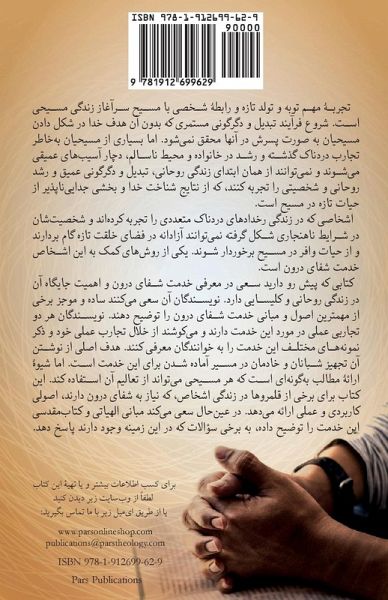 ISBN 978-1-912699-62-9
90000
9 781912 699629
تجربۀ مهم توبه و تولد تازه و رابطۀ شخصی با مسیح سرآغاز زندگی مسیحی
است. شروع فرآیند تبدیل و دگرگونی مستمری که بدون آن هدف خدا در شکل دادن
مسیحیان به صورت پسرش در آنها محقق نمی‌شود. اما بسیاری از مسیحیان به‌خاطر
تجارب دردناک گذشته و رشد در خانواده و محیط ناسالم، دچار آسیب‌های عمیقی
می‌شوند و نمی‌توانند از همان ابتدای زندگی روحانی، تبدیل و دگرگونی عمیق و رشد
روحانی و شخصیتی را تجربه کنند، که از نتایج شناخت خدا و بخشی جدایی‌ناپذیر از
حیات تازه در مسیح است.
اشخاصی که در زندگی رخدادهای دردناک متعددی را تجربه کرده‌اند و شخصیت‌شان
در شرایط ناهنجاری شکل گرفته نمی‌توانند آزادانه در فضای خلقت تازه گام بردارند
و از حیات وافر در مسیح برخوردار شوند. یکی از روش‌های کمک به این اشخاص
خدمت شفای درون است.
کتابی که پیش رو دارید سعی در معرفی خدمت شفای درون و اهمیت جایگاه آن
در زندگی روحانی و کلیسایی دارد. نویسندگان آن سعی می‌کنند ساده و موجز برخی
از مهمترین اصول و مبانی خدمت شفای درون را توضیح دهند. نویسندگان هر دو
تجاربی عملی در مورد این خدمت دارند و می‌کوشند از خلال تجارب عملی خود و ذکر
نمونه‌های مختلف این خدمت را به خوانندگان معرفی کنند. هدف اصلی از نوشتن
آن تجهیز شبانان و خادمان در مسیر آماده شدن برای این خدمت است. اما شیوۀ
ارائۀ مطالب به‌گونه‌ای است که هر مسیحی می‌تواند از تعالیم آن استفاده کند. این
کتاب برای برخی از قلمروها در زندگی اشخاص، که نیاز به شفای درون دارند، اصولی
کاربردی و عملی ارائه می‌دهد. در عین‌حال سعی می‌کند مبانی الهیاتی و کتاب‌مقدسی
این خدمت را توضیح داده، به برخی سؤالات که در این زمینه وجود دارند پاسخ دهد.
برای کسب اطلاعات بیشتر و یا تهیۀ این کتاب
لطفاً از وب‌سایت زیر دیدن کنید
یا از طریق ای‌میل زیر با ما تماس بگیرید:
www.parsonlineshop.com
publications@parstheology.com
ISBN 978-1-912699-62-9
Pars Publications